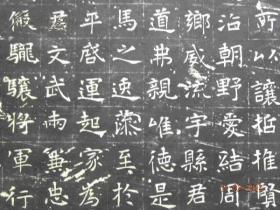 以讓哲推賢
洽朝野愛結周
鄉威流字縣君
道弗親唯德是
馬之速藻至於
平啓運起家為
君文武兩兼忠
假龍驤將軍行